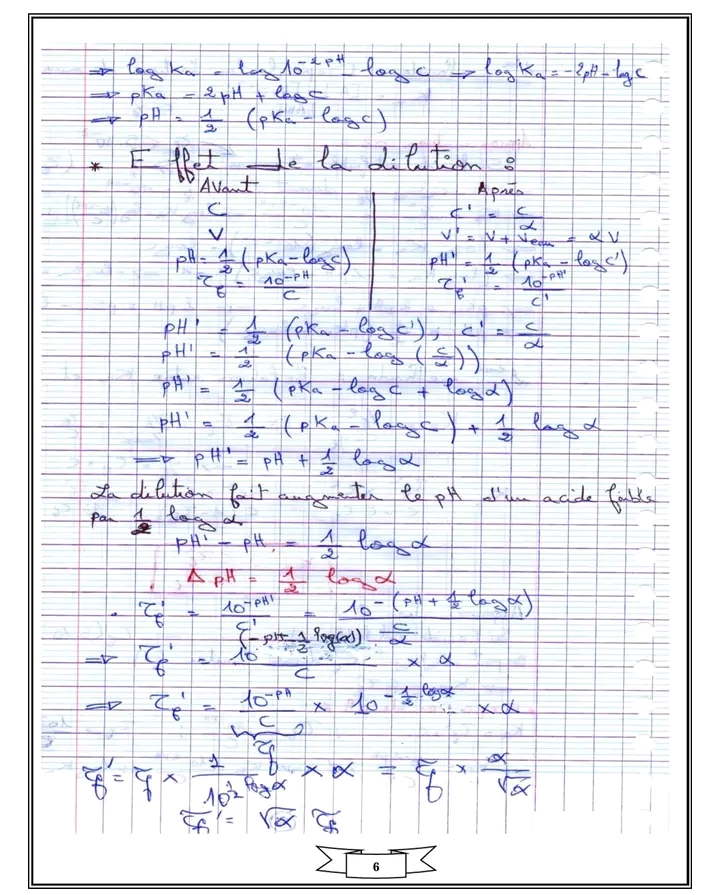 ⇒ log Ka = log 10^-2pH - log c ⇒ log Ka = -2pH - log c
⇒ pKa = 2pH + log c
⇒ pH = 1/2 (pKa - log c)
* Effet de la dilution :
Avant Après
C c' = c/α
V V' = V + Veau = αV
pH = 1/2 (pKa - log c) pH' = 1/2 (pKa - log c')
τf = 10^-pH/C τf' = 10^-pH'/c'
pH' = 1/2 (pKa - log c'), c' = c/α
pH' = 1/2 (pKa - log (c/α))
pH' = 1/2 (pKa - log c + log α)
pH' = 1/2 (pKa - log c) + 1/2 log α
⇒ pH' = pH + 1/2 log α
La dilution fait augmenter le pH d'un acide faible
par 1/2 log α
pH' - pH = 1/2 log α
Δ pH = 1/2 log α
. τf' = 10^-pH'/c' = 10^-(pH + 1/2 log α)/(c/α)
⇒ τf' = 10^(-pH - 1/2 log(α))/C × α
⇒ τf' = 10^-pH/C × 10^-1/2 log α × α
τf
τf' = τf × 1/10^1/2 log α × α = τf × α/√α
τf' = √α τf
6